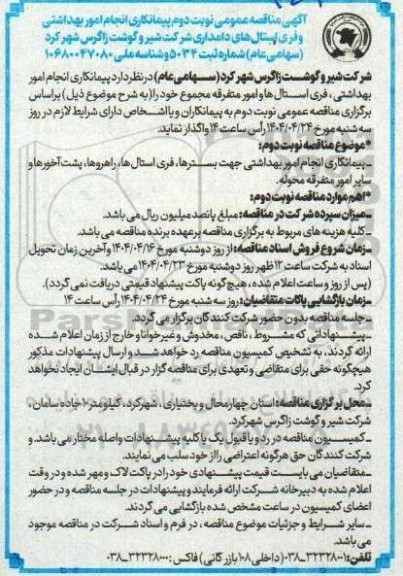 آگهی مناقصه عمومی نوبت دوم پیمانکاری انجام امور بهداشتی
و فری استال‌های دامداری شرکت شیر و گوشت زاگرس شهر کرد
(سهامی عام) شماره ثبت ۵۰۳۴ و شناسه ملی ۱۰۶۸۰۰۴۷۰۸۰
شرکت شیر و گوشت زاگرس شهر کرد (سهامی عام) در نظر دارد پیمانکاری انجام امور
بهداشتی ، فری استال‌ها و امور متفرقه مجموع خود را (به شرح موضوع ذیل) بر اساس
برگزاری مناقصه عمومی نوبت دوم به پیمانکاران و یا اشخاص دارای شرایط لازم در روز
سه شنبه مورخ ۱۴۰۴/۰۴/۲۴ رأس ساعت ۱۴ واگذار نماید.
*موضوع مناقصه نوبت دوم:
ـ پیمانکاری انجام امور بهداشتی جهت بسترها، فری استال‌ها، راهروها، پشت آخورها و
سایر امور متفرقه محوله.
*اهم موارد مناقصه نوبت دوم:
ـ میزان سپرده شرکت در مناقصه: مبلغ پانصد میلیون ریال می باشد.
ـ کلیه هزینه های مربوط به برگزاری مناقصه بر عهده برنده مناقصه می باشد.
ـ زمان شروع فروش اسناد مناقصه: از روز دوشنبه مورخ ۱۴۰۴/۰۴/۱۶ و آخرین زمان تحویل
اسناد به شرکت ساعت ۱۲ ظهر روز دوشنبه مورخ ۱۴۰۴/۰۴/۲۳ می باشد.
(پس از روز و ساعت اعلام شده ، هیچ گونه پاکت پیشنهاد قیمتی دریافت نمی گردد).
ـ زمان بازگشایی پاکات متقاضیان: روز سه شنبه مورخ ۱۴۰۴/۰۴/۲۴ رأس ساعت ۱۴
ـ جلسه مناقصه بدون حضور شرکت کنندگان برگزار می گردد.
ـ پیشنهاداتی که مشروط ، ناقص ، مخدوش و غیر خوانا و خارج از زمان اعلام شده
ارائه گردند ، به تشخیص کمیسیون مناقصه رد خواهد شد و ارسال پیشنهادات مذکور
هیچگونه حقی برای متقاضی و تعهدی برای مناقصه گزار در قبال ایشان ایجاد نخواهد
کرد.
ـ محل برگزاری مناقصه: استان چهارمحال و بختیاری ، شهرکرد، کیلومتر ۲ جاده سامان،
شرکت شیر و گوشت زاگرس شهرکرد.
ـ کمیسیون مناقصه در رد و یا قبول یک یا کلیه پیشنهادات واصله مختار می باشد. و
شرکت کنندگان حق هرگونه اعتراضی را از خود سلب می نمایند.
ـ متقاضیان می بایست قیمت پیشنهادی خود را در پاکت لاک و مهر شده و در وقت
اعلام شده به دبیرخانه شرکت ارائه فرمایند و پیشنهادات در جلسه مناقصه و در حضور
اعضای کمیسیون در ساعت مشخص شده بازگشایی می گردند.
ـ سایر شرایط و جزئیات موضوع مناقصه ، در فرم و اسناد شرکت در مناقصه موجود
می باشد.
تلفن: ۳۲۳۲۸۰۰۱-۰۳۸ (داخلی ۱۰۸ بازرگانی) فاکس: ۳۲۳۲۸۰۰۰-۰۳۸